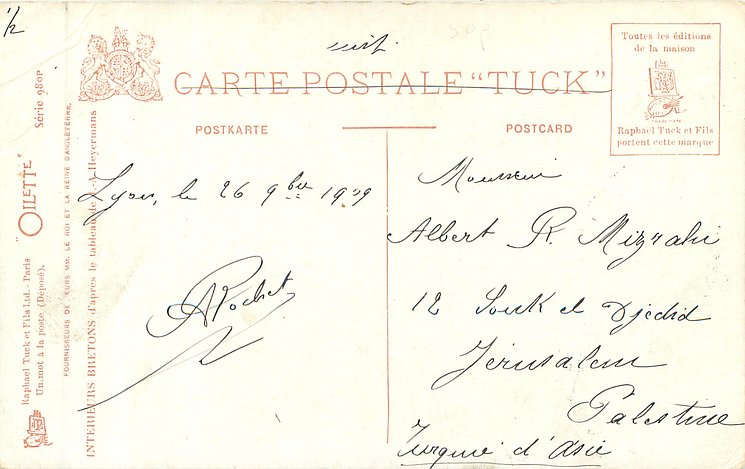 1/2
Toutes les éditions
de la maison
Raphael Tuck et Fils
portent cette marque
CARTE POSTALE "TUCK"
POSTKARTE
POSTCARD
Lyon, le 26 9bre 1909
ARochet
Monsieur
Albert R. Mizrahi
12 Souk el Djedid
Jérusalem
Palestine
Turquie d'Asie
Raphael Tuck et Fils Ltd.-Paris
Un mot à la poste (Déposé).
"OILETTE"
Série 980P
FOURNISSEURS DE LEURS MM. LE ROI ET LA REINE D'ANGLETERRE.
INTERIEURS BRETONS d'après le tableau de Heyermans